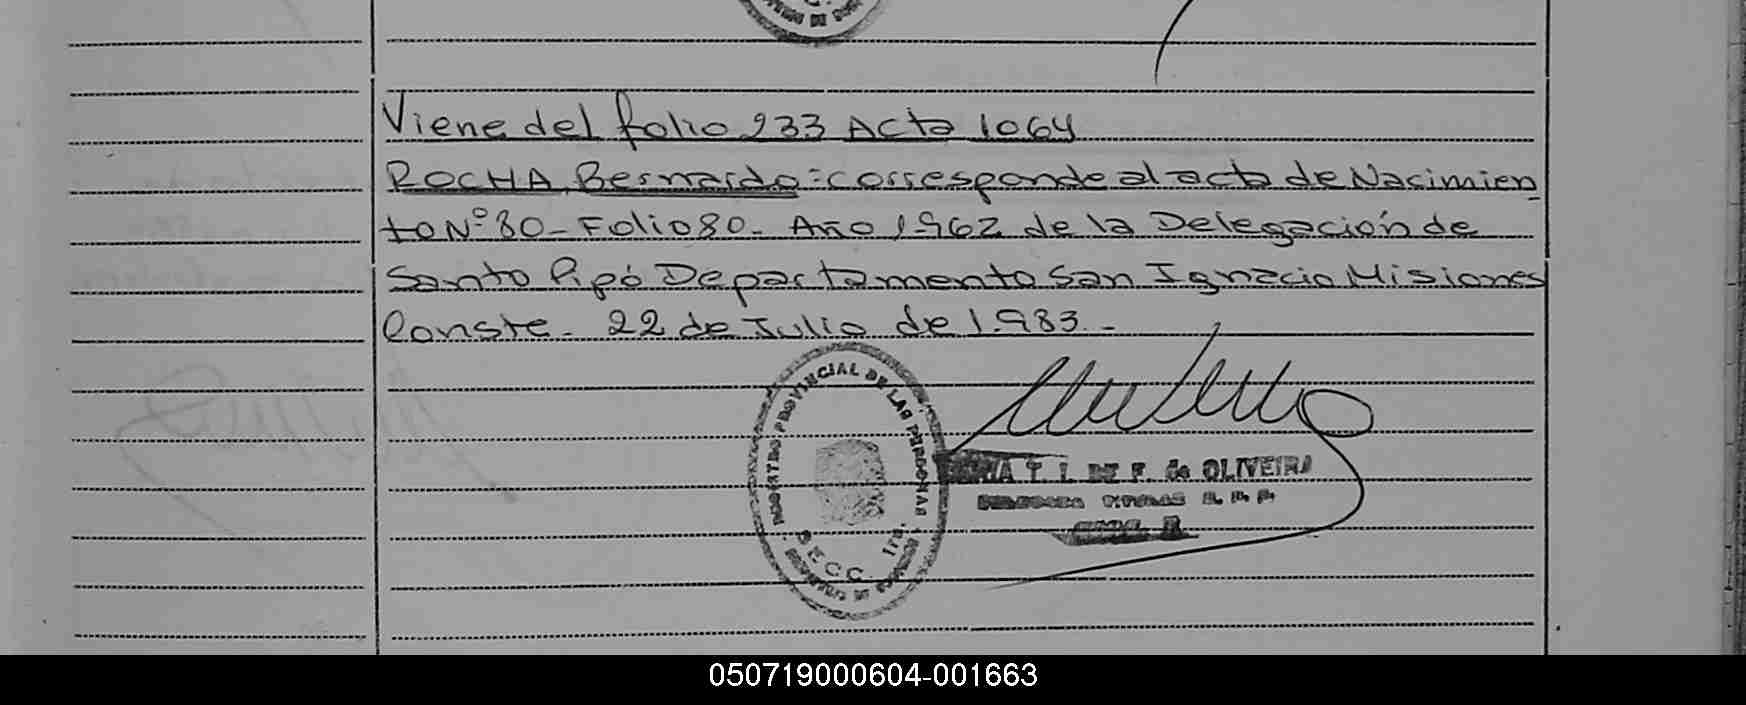 Viene del folio 233 Acta 1064
ROCHA, Bernardo: corresponde al acta de Nacimien
to Nº 80 - Folio 80 - Año 1962 de la Delegación de
Santo Pipó Departamento San Ignacio Misiones
Conste - 22 de Julio de 1.983 -
REGISTRO PROVINCIAL DE LAS PERSONAS
SECC. 1ra.
T. I. DE F. de OLIVEIRA
050719000604-001663